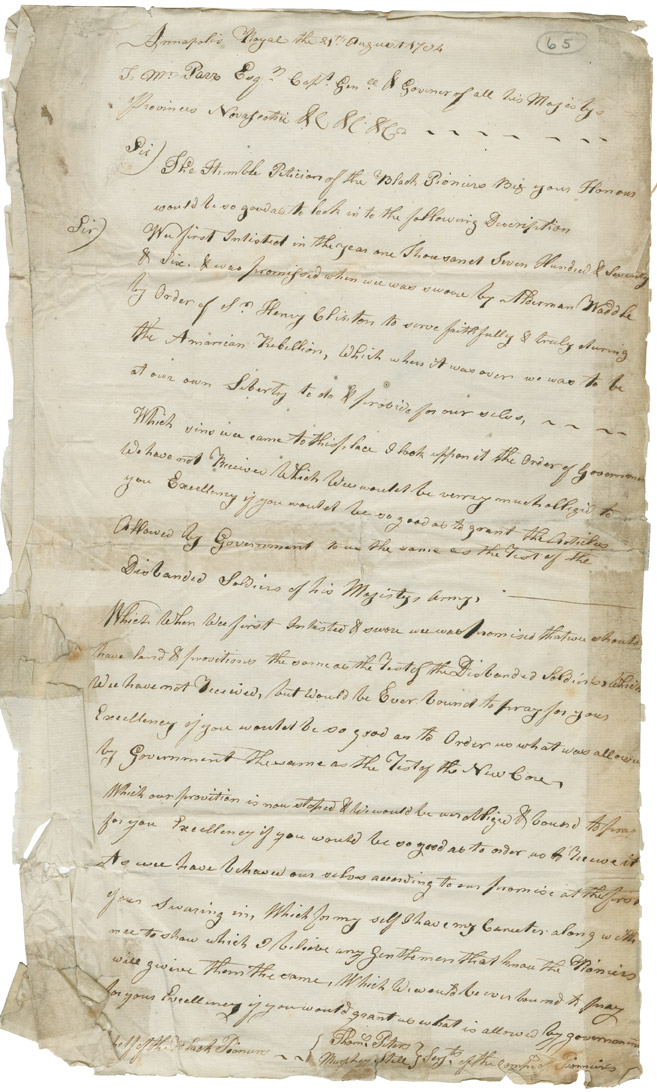 65
Annapolis Royal the 21th August 1784
To Mr Parr Esqr Capt Genll & Goviner of all his Majestys
Provinces Novascotie &C &C &C
Sir) The Humble Peticion of the Black Pioniers Big your Honour
would be so good as to look in to the following Discription
Sir) We first Inlisted in the year one Thousand Seven Hundred & Seventy
& Six. & was promissed when wee was swore by Alderman Waddle
by Order of Sr Henry Clinton to serve faithfully & truly during
the Amarican Rebellion, Which when it was over we was to be
at our own Liberty to do & provide for our selvs,
Which sins wee came to this place I look uppon it the Order of Governmen
We have not Receved Which Wee would be verrey much obligd to
you Excellency if you would be so good as to grant the Articles
Allowed by Government to us the same as the Rest of the
Disbanded Soldiers of his Majestys Army,
Which When Wee first Inlested & swore wee was Promised that we should
have land & provitions the same as the Rest of the Disbanded Soldiers Which
Wee have not Receved, but Would be Ever bound to pray for your
Excellency if you would be so good as to Order us what was allowed
by Government the same as the Rest of the New Core,
Which our provition is now stoped & We would be ever obliged & bound to pray
for you Excellency if you would be so good as to order us to Receve it
As wee have behaved our selvs according to our promise at the first
of our Swaring in, Which for my self I have my Caracter along with
mee to show which I believe any Gentlemen that know the Pioniers
will giveve them the same, Which We would be ever bound to pray
for your Excellency if you would grant us what is allowed by government
half of the Black Pioneers { Thomas Peters
Murphey Still } Sergts of the Company Pionniers